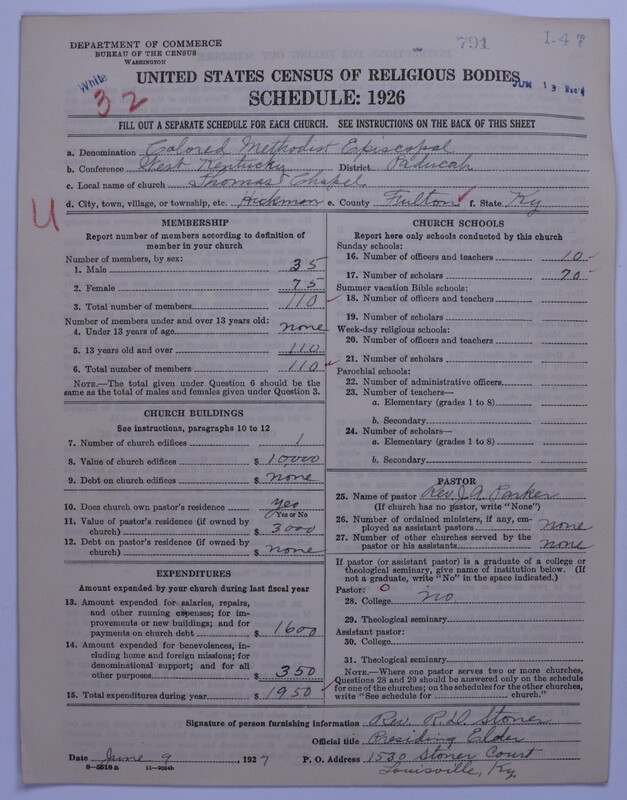 DEPARTMENT OF COMMERCE
BUREAU OF THE CENSUS
WASHINGTON
791
1-47
White
32
UNITED STATES CENSUS OF RELIGIOUS BODIES
JUN 13
SCHEDULE: 1926
FILL OUT A SEPARATE SCHEDULE FOR EACH CHURCH. SEE INSTRUCTIONS ON THE BACK OF THIS SHEET
a. Denomination Colored Methodist Episcopal
b. Conference West Kentucky District Paducah
c. Local name of church Thomas Chapel
d. City, town, village, or township, etc. Hickman e. County Fulton f. State Ky
U
MEMBERSHIP
Report number of members according to definition of
member in your church
Number of members, by sex:
1. Male 35
2. Female 75
3. Total number of members 110
Number of members under and over 13 years old:
4. Under 13 years of age none
5. 13 years old and over 110
6. Total number of members 110
NOTE.—The total given under Question 6 should be
same as the total of males and females given under Question 3.
CHURCH BUILDINGS
See instructions, paragraphs 10 to 12
7. Number of church edifices 1
8. Value of church edifices $ 10,000
9. Debt on church edifices $ none
10. Does church own pastor's residence yes
Yes or No
11. Value of pastor's residence (if owned by
church) $ 3000
12. Debt on pastor's residence (if owned by
church) $ none
EXPENDITURES
Amount expended by your church during last fiscal year
13. Amount expended for salaries, repairs,
and other running expenses; for im-
provements or new buildings; and for
payments on church debt $ 1600
14. Amount expended for benevolences, in-
cluding home and foreign missions; for
denominational support; and for all
other purposes $ 350
15. Total expenditures during year $ 1950
CHURCH SCHOOLS
Report here only schools conducted by this church
Sunday schools:
16. Number of officers and teachers 10
17. Number of scholars 70
Summer vacation Bible schools:
18. Number of officers and teachers
19. Number of scholars
Week-day religious schools:
20. Number of officers and teachers
21. Number of scholars
Parochial schools:
22. Number of administrative officers
23. Number of teachers—
a. Elementary (grades 1 to 8)
b. Secondary
24. Number of scholars—
a. Elementary (grades 1 to 8)
b. Secondary
PASTOR
25. Name of pastor Rev. J. A. Parker
(If church has no pastor, write "None")
26. Number of ordained ministers, if any, em-
ployed as assistant pastors none
27. Number of other churches served by the
pastor or his assistants none
If pastor (or assistant pastor) is a graduate of a college or
theological seminary, give name of institution below. (If
not a graduate, write "No" in the space indicated.)
Pastor: O
28. College no
29. Theological seminary
Assistant pastor:
30. College
31. Theological seminary
NOTE.—Where one pastor serves two or more churches,
Questions 28 and 29 should be answered only on the schedule
for one of the churches; on the schedules for the other churches,
write "See schedule for church."
Signature of person furnishing information Rev. R. D. Stoner
Official title Presiding Elder
Date June 9, 1927 P. O. Address 1530 Stoner Court
Louisville, Ky.